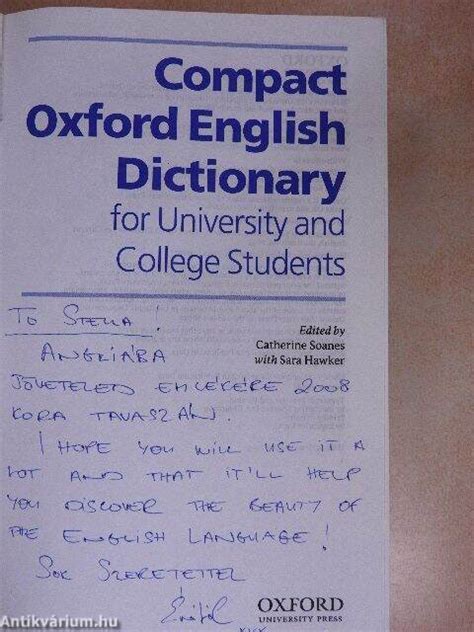 Compact
Oxford English
Dictionary
for University and
College Students
Edited by
Catherine Soanes
with Sara Hawker
TO STELLA!
ANGLIÁBA
JÖVETELED EMLÉKÉRE 2008
KORA TAVASZÁN.
I HOPE YOU WILL USE IT A
LOT AND THAT IT'LL HELP
YOU DISCOVER THE BEAUTY OF
THE ENGLISH LANGUAGE!
SOK SZERETETTEL
xxx
OXFORD
UNIVERSITY PRESS
Antikvárium.hu